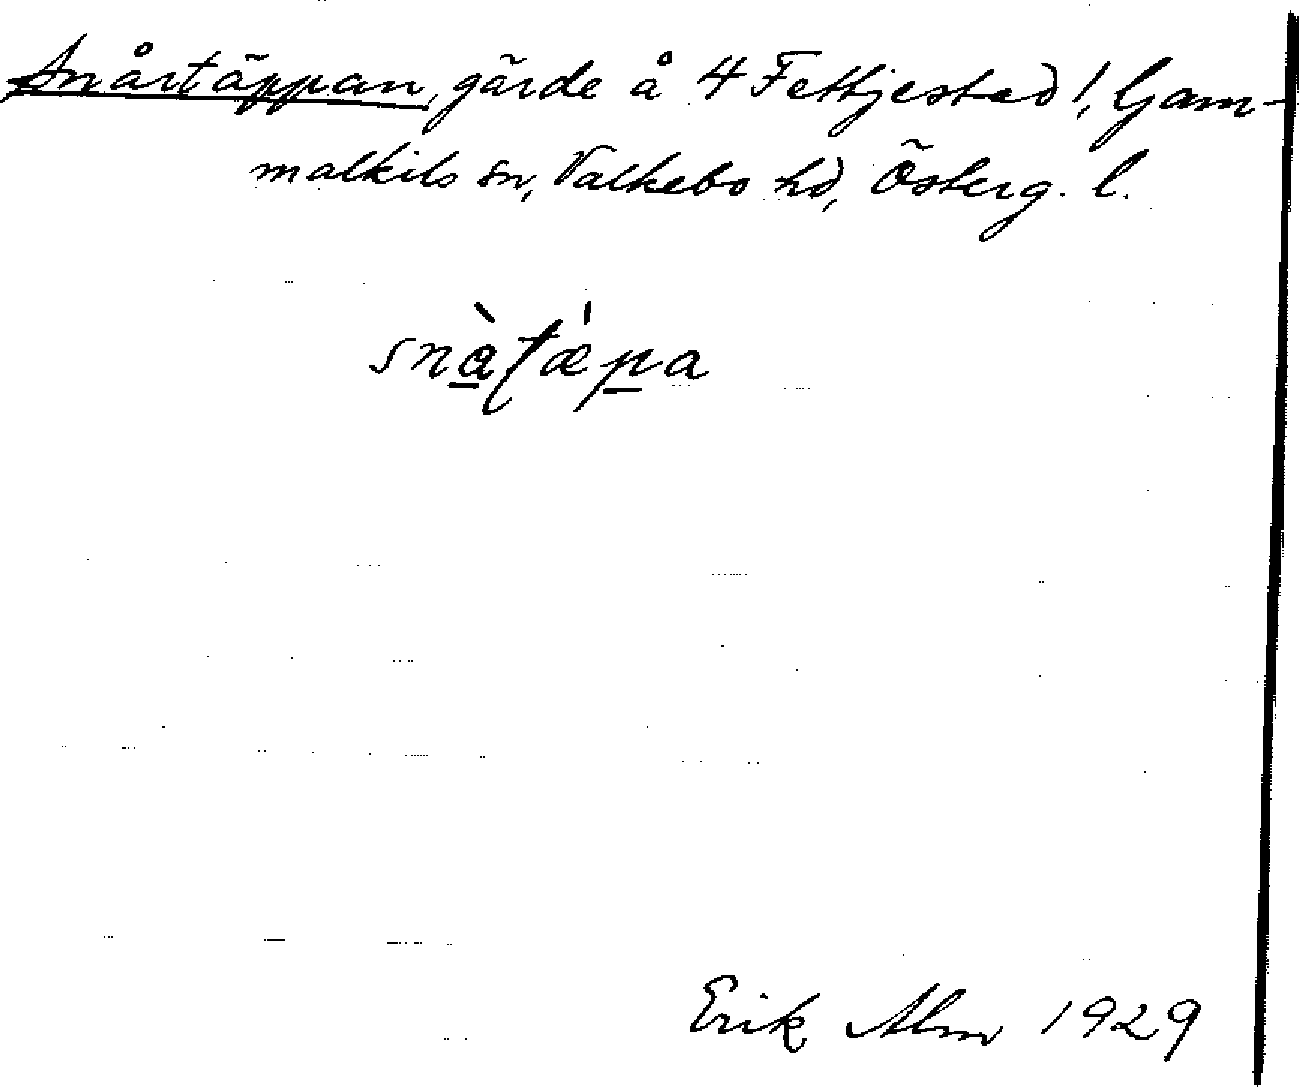 Snårtäppan, gärde å 4 Fettjestad!, Gam-
malkils sn, Valkebo hd, Österg. l.
snàtǽpa
Erik Alm 1929